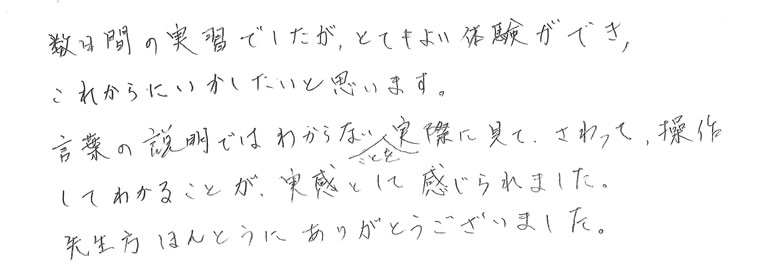 数日間の実習でしたが、とてもよい体験ができ、
これからにいかしたいと思います。
言葉の説明ではわからないことを実際に見て、さわって、操作
してわかることが、実感として感じられました。
先生方ほんとうにありがとうございました。